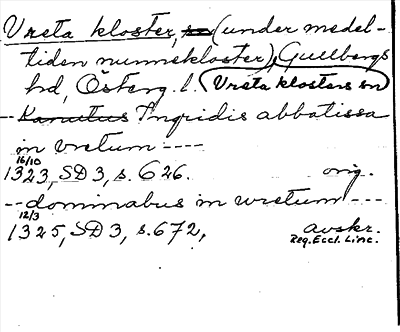 Vreta kloster, sn (under medel-
tiden nunnekloster), Gullbergs
hd, Österg. l. (Vreta klosters sn)
-- Kanutus Ingridis abbatissa
in vretum ----
16/10
1323, SD 3, s. 626. orig.
-- dominabus in wretum ---
12/3
1325, SD 3, s. 672, avskr.
Reg. Eccl. Linc.